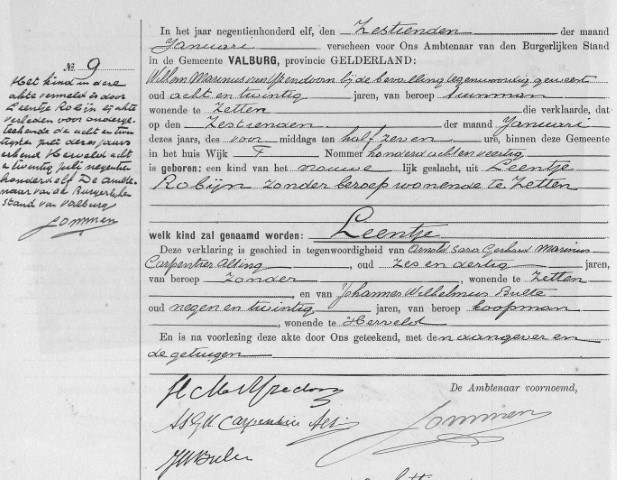 No. 9
Het kind in deze
akte vermeld is door
Leentje Robijn bij akte
verleden voor onderge-
teekende de acht en twin
tigste juli dezes jaars
erkend Herveld acht
en twintig juli negentien
honderd elf De ambte-
naar van de Burgerlijken
stand van Valburg
Lommen
In het jaar negentienhonderd elf, den Zestienden der maand
Januari verscheen voor Ons Ambtenaar van den Burgerlijken Stand
in de Gemeente VALBURG, provincie GELDERLAND:
Willem Marinus van bij de bevalling tegenwoordig geweest
oud acht en twintig jaren, van beroep tuinman
wonende te Zetten die verklaarde, dat
op den Zestienden der maand Januari
dezes jaars, des voor middags ten half zeven ure, binnen deze Gemeente
in het huis Wijk F Nommer honderd acht en veertig
is geboren: een kind van het vrouwelijk geslacht, uit Leentje
Robijn zonder beroep wonende te Zetten
welk kind zal genaamd worden: Leentje
Deze verklaring is geschied in tegenwoordigheid van Arnold Sara Gerhard Marinus
Carpentier Alting, oud Zes en dertig jaren,
van beroep Zonder, wonende te Zetten
, en van Johannes Wilhelmus Bulte
oud negen en twintig jaren, van beroep koopman
, wonende te Herveld
En is na voorlezing deze akte door Ons geteekend, met den aangever en
de getuigen
De Ambtenaar voornoemd,
Carpentier Alting
Lommen
JW Bulte